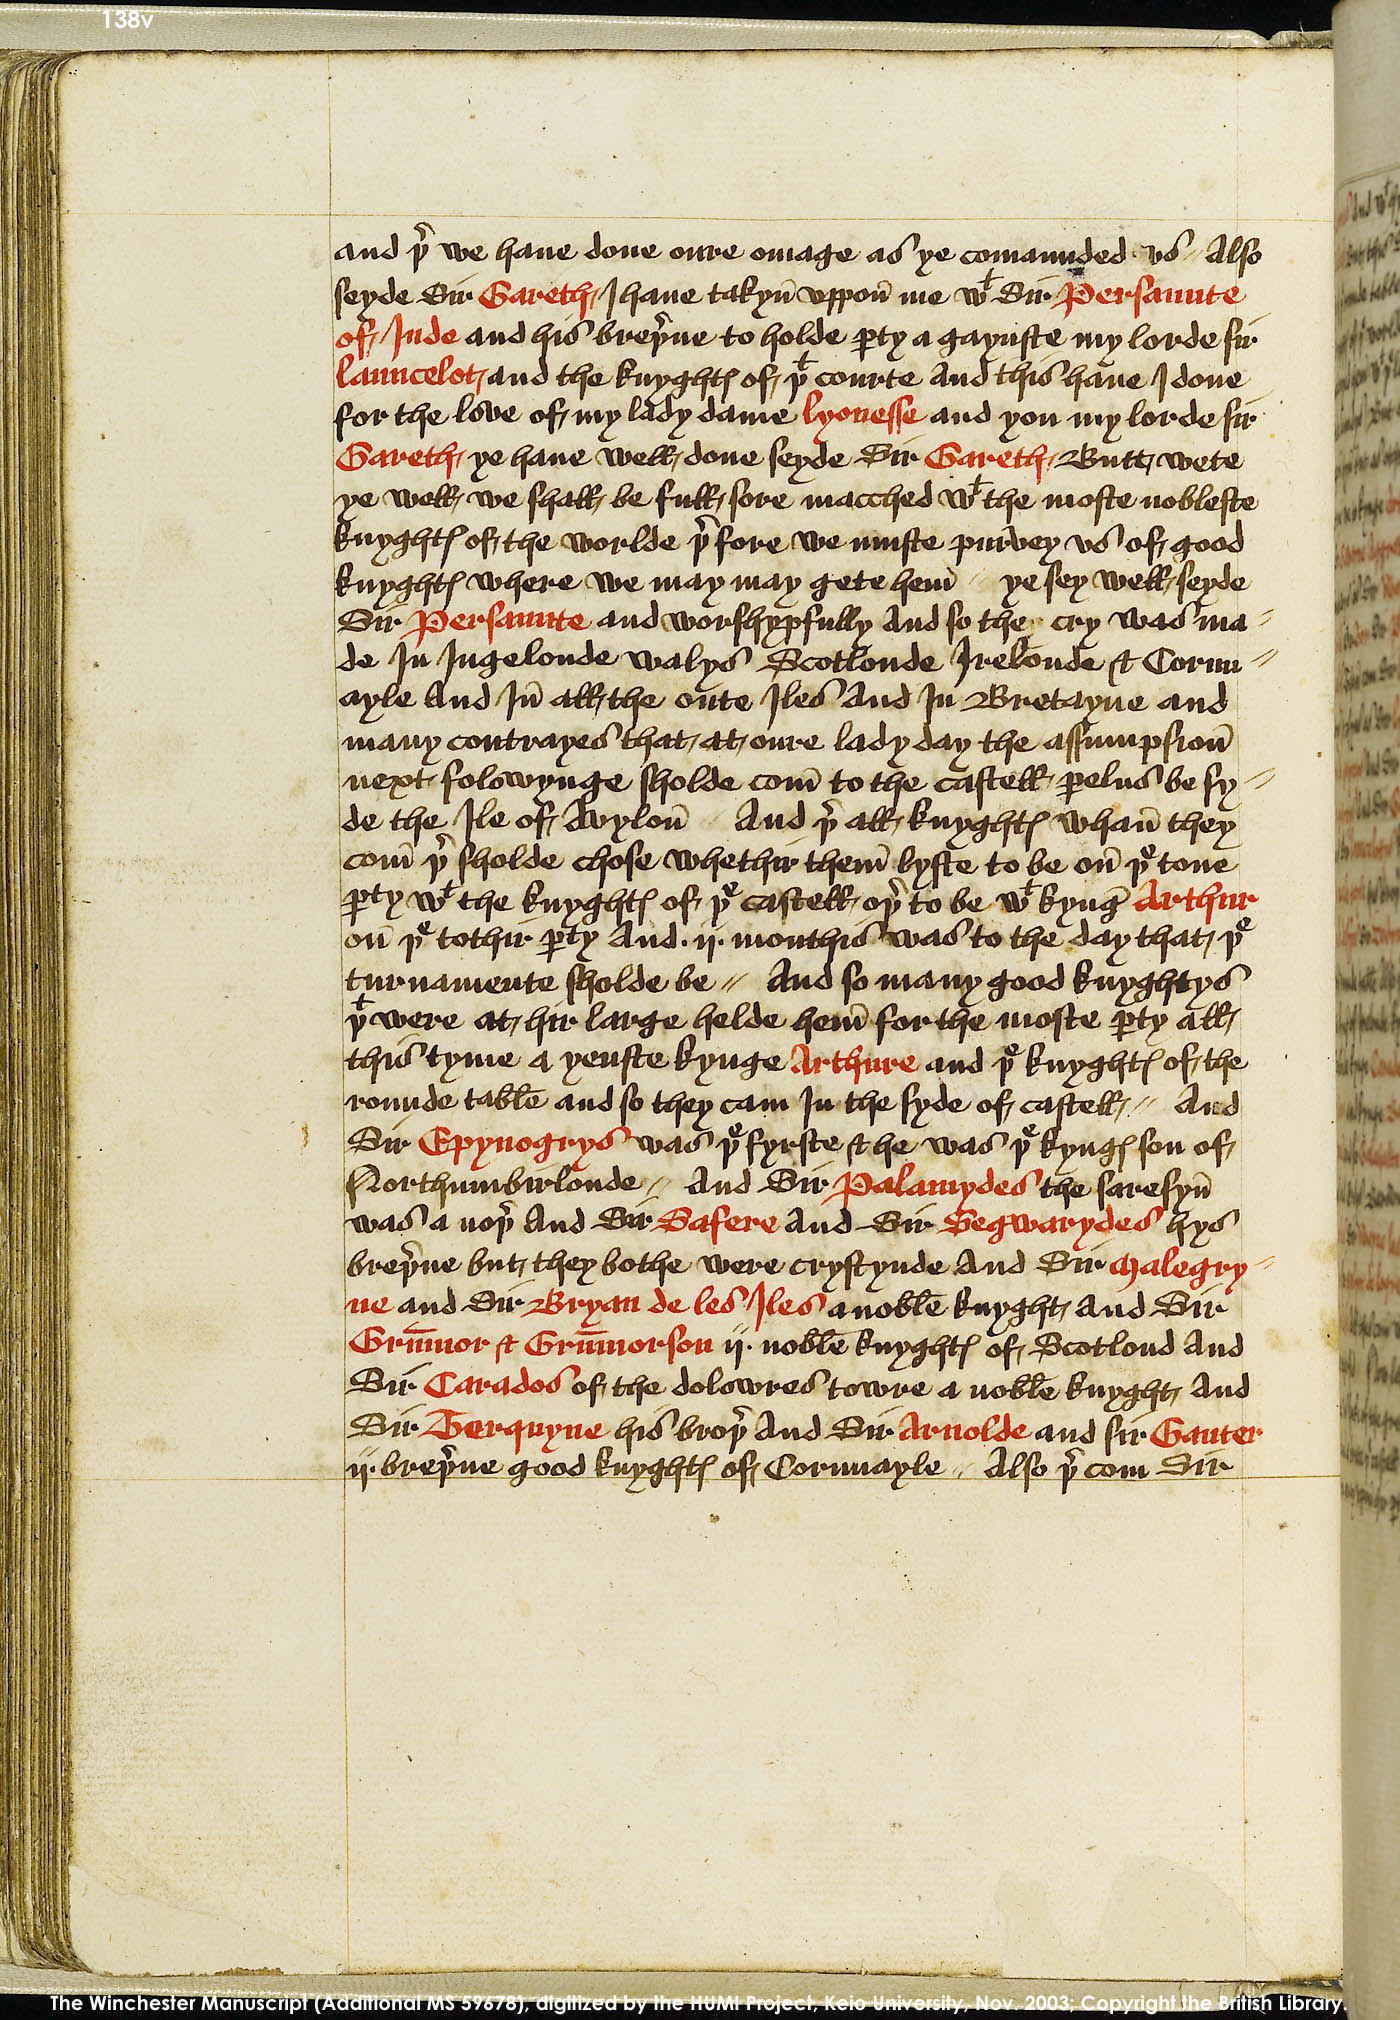 138v
and þͬ we haue done oure omage as ye comaunded vs // Also
seyde Sir Gareth I haue takyn̄ vppon̄ me wᵗ Sir Persaunte
of Inde and his breþͬne to holde ꝑty a gaynste my lorde sir
launcelot and the knyghtꝭ of þᵗ courte And this haue I done
for the love of my lady dame lyonesse and you my lorde sir
Gareth ye haue well done seyde Sir Gareth Butt wete
ye well we shall be full sore macched wᵗ the moste nobleste
knyghtꝭ of the worlde þͬfore we muste purvey vs of good
knyghtꝭ where we may may gete hem̄ // ye sey well seyde
Sir Persaunte and worshypfully And so the cry was ma //
de In Ingelonde walys Scotlonde Irelonde & Cornu //
ayle And In̄ all the oute Iles And In Bretayne and
many contrayes that at oure lady day the assumpsion̄
next folowynge sholde com̄ to the castell ꝑelus be sy //
de the Ile of Avylon̄ // And þͬ all knyghtꝭ whan̄ they
com̄ þͬ sholde chose whethir them̄ lyste to be on̄ þᵉ tone
ꝑty wᵗ the knyghtꝭ of þᵉ castell oþͬ to be wᵗ kynḡ Arthur
on̄ þᵉ tothir ꝑty And · ij · monthis was to the day that þᵉ
turnamente sholde be // And so many good knyghtys
þᵗ were at hir large helde hem̄ for the moste ꝑty all
this tyme a yenste kynge Arthure and þᵉ knyghtꝭ of the
rounde table and so they cam In the syde of castell // And
Sir Epynogrys was þᵉ fyrste & he was þᵉ kyngꝭ son of
Northumbirlonde // And Sir Palamydes the saresyn̄
was a noþͬ And Sir Safere And Sir Segwarydes hys
breþͬne but they bothe were crystynde And Sir Malegry //
ne and Sir Bryan de les Iles a noble knyght And Sir
Grūmor & Grūmorson ij · noble knyghtꝭ of Scotlond And
Sir Carados of the dolowres towre a noble knyght And
Sir Terquyne his broþͬ And Sir Arnolde and sir Gauter
ij · breþͬne good knyghtꝭ of Cornuayle // Also þͬ com Sir
The Winchester Manuscript (Additional MS 59678), digitized by the HUMI Project, Keio University, Nov. 2003; Copyright the British Library.